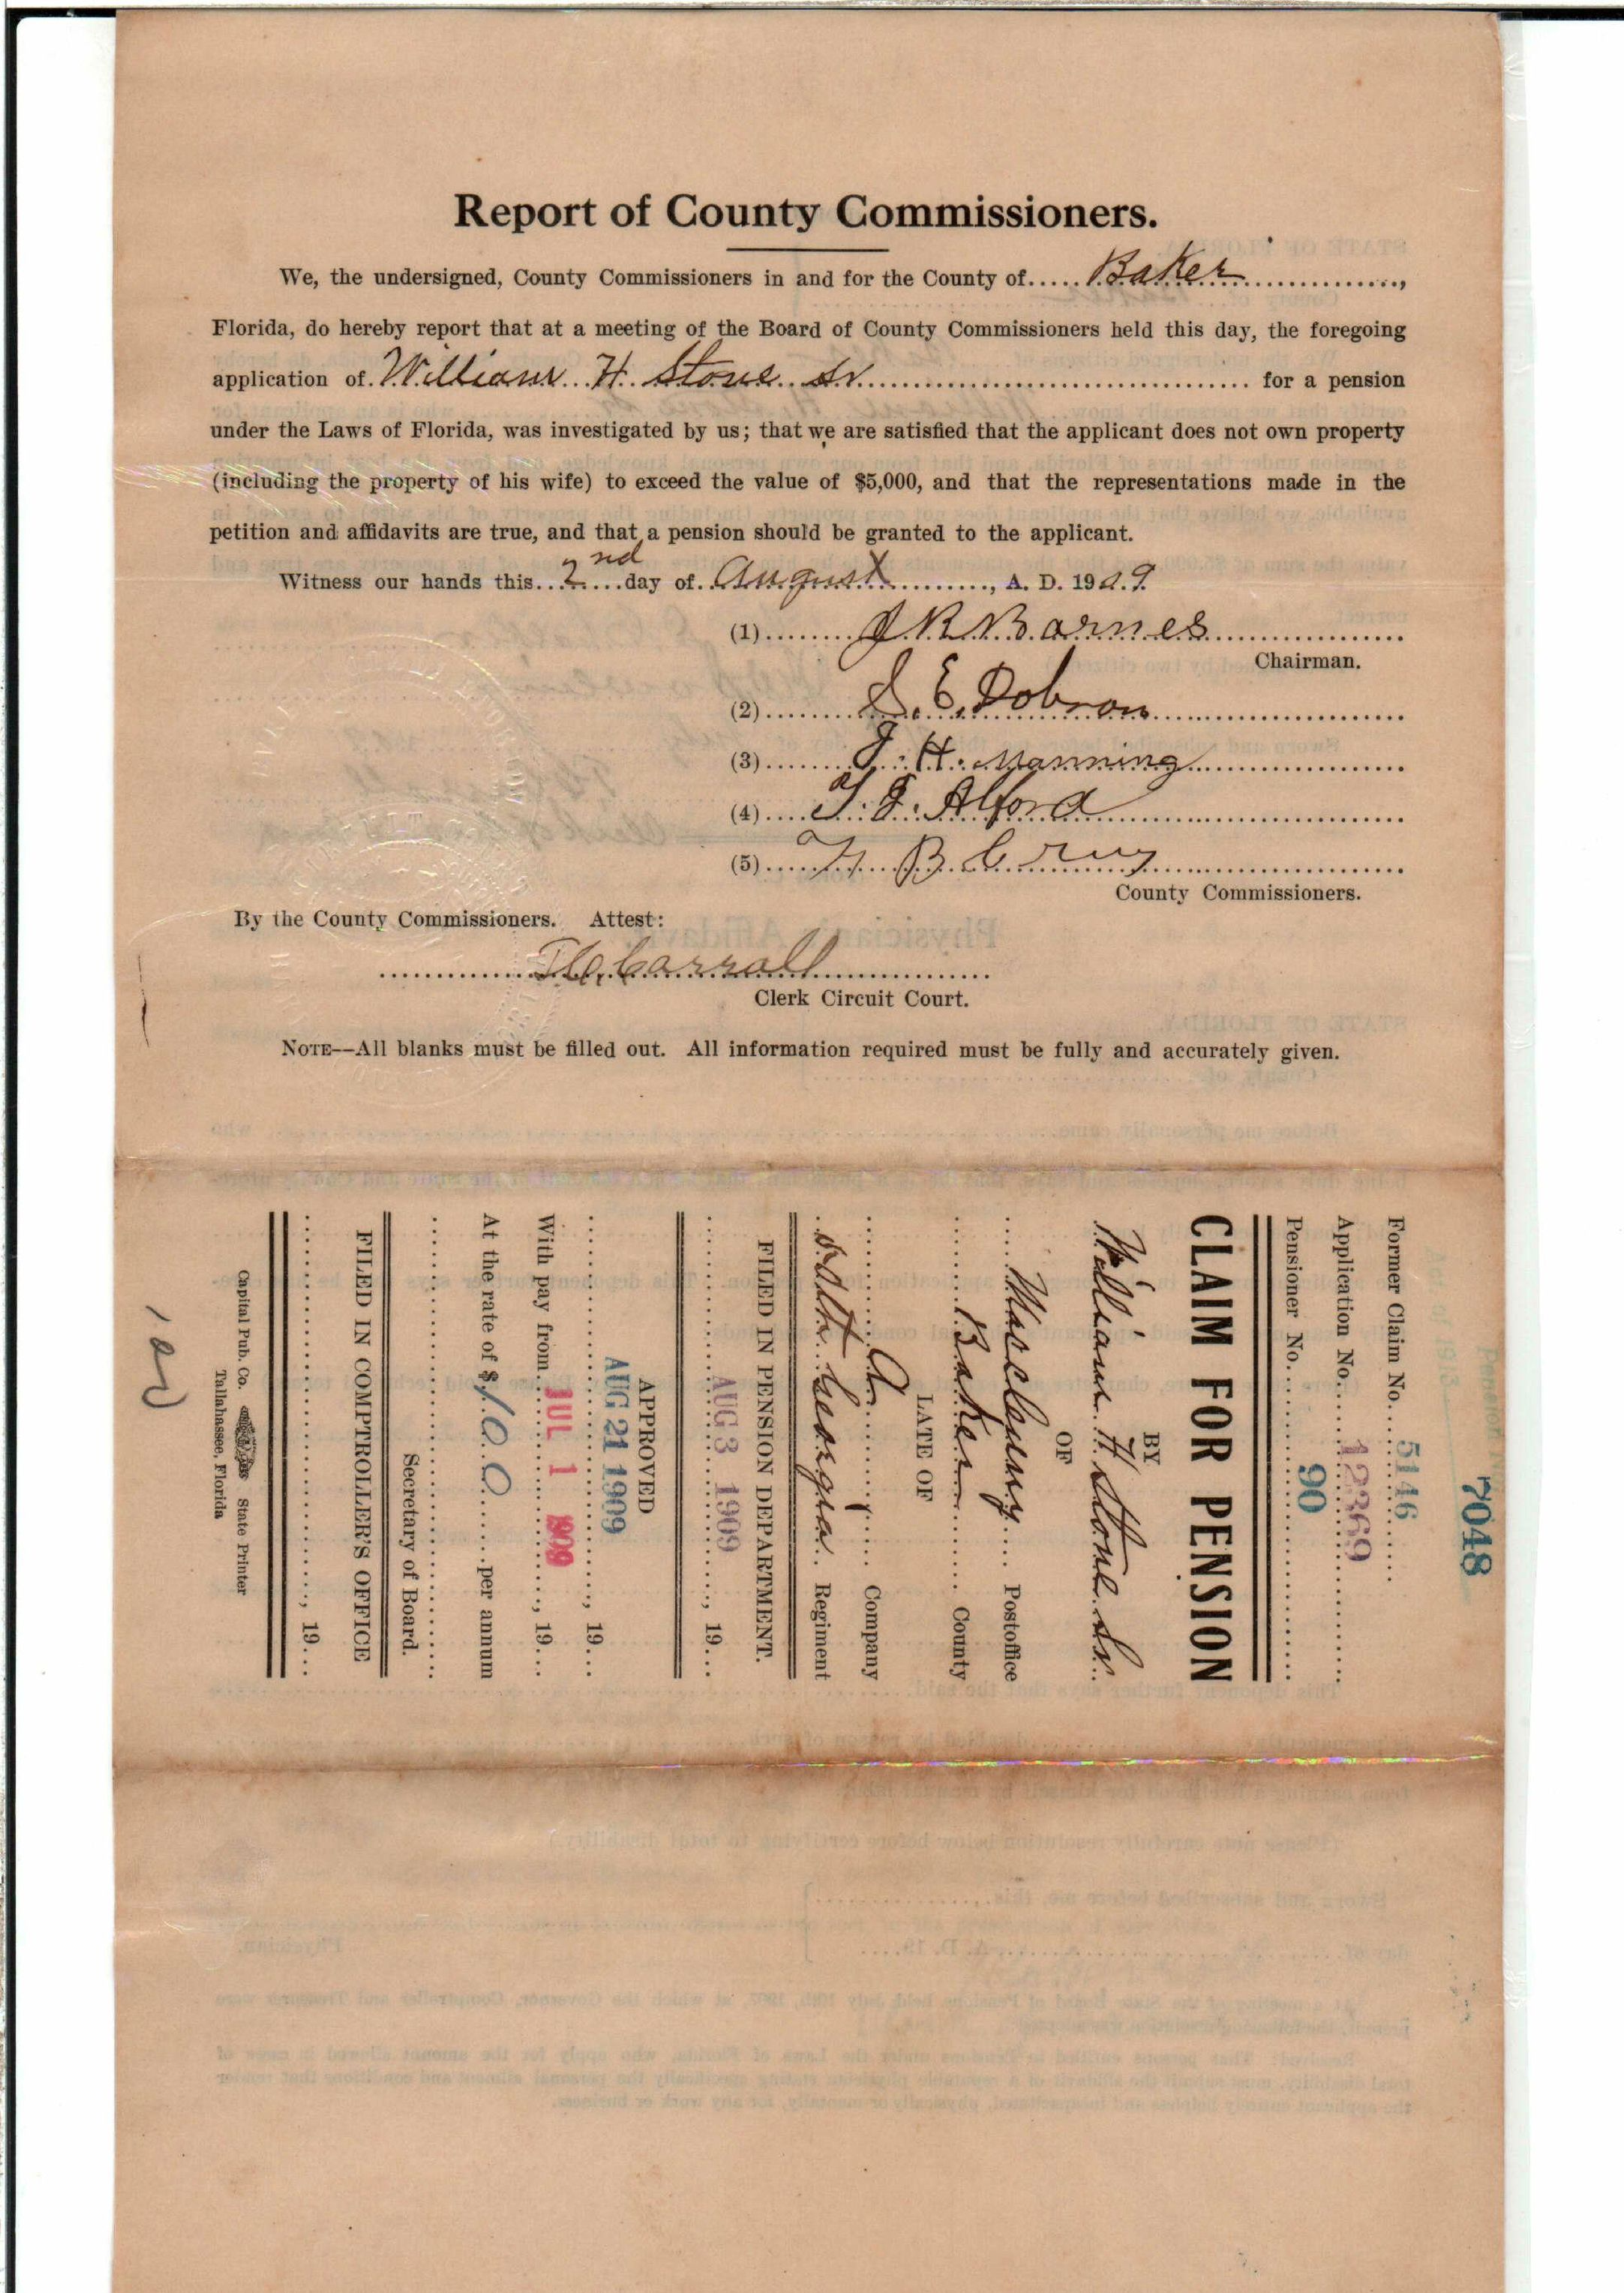 Report of County Commissioners.
We, the undersigned, County Commissioners in and for the County of..... Baker ..............,
Florida, do hereby report that at a meeting of the Board of County Commissioners held this day, the foregoing
application of. William H. Stone Sr. .............................. for a pension
under the Laws of Florida, was investigated by us; that we are satisfied that the applicant does not own property
(including the property of his wife) to exceed the value of $5,000, and that the representations made in the
petition and affidavits are true, and that a pension should be granted to the applicant.
Witness our hands this...2nd...day of. August .........., A. D. 1909
(1)........ J R Barnes ..................
Chairman.
(2)........ S. E. Dobson ..................
(3)........ J. H. Manning ..................
(4).... T. J. Alford ..................
(5)....
County Commissioners.
By the County Commissioners. Attest:
Carroll
Clerk Circuit Court.
NOTE—All blanks must be filled out. All information required must be fully and accurately given.
7048
Former Claim No.... 5146 ......
Application No.... 12369 ..........
Pensioner No..... 90 ..........
CLAIM FOR PENSION
BY
William H Stone Sr.
OF
Macclenny .... Postoffice
Baker ........ County
LATE OF
A ........ Company
Georgia .. Regiment
FILED IN PENSION DEPARTMENT.
AUG 3 1909 ......, 19...
APPROVED
AUG 21 1909 ......, 19...
With pay from.. JUL 1 1909 ...., 19...
At the rate of $ 100 ......per annum
Secretary of Board.
FILED IN COMPTROLLER'S OFFICE
......................, 19...
Capital Pub. Co. State Printer
Tallahassee, Florida